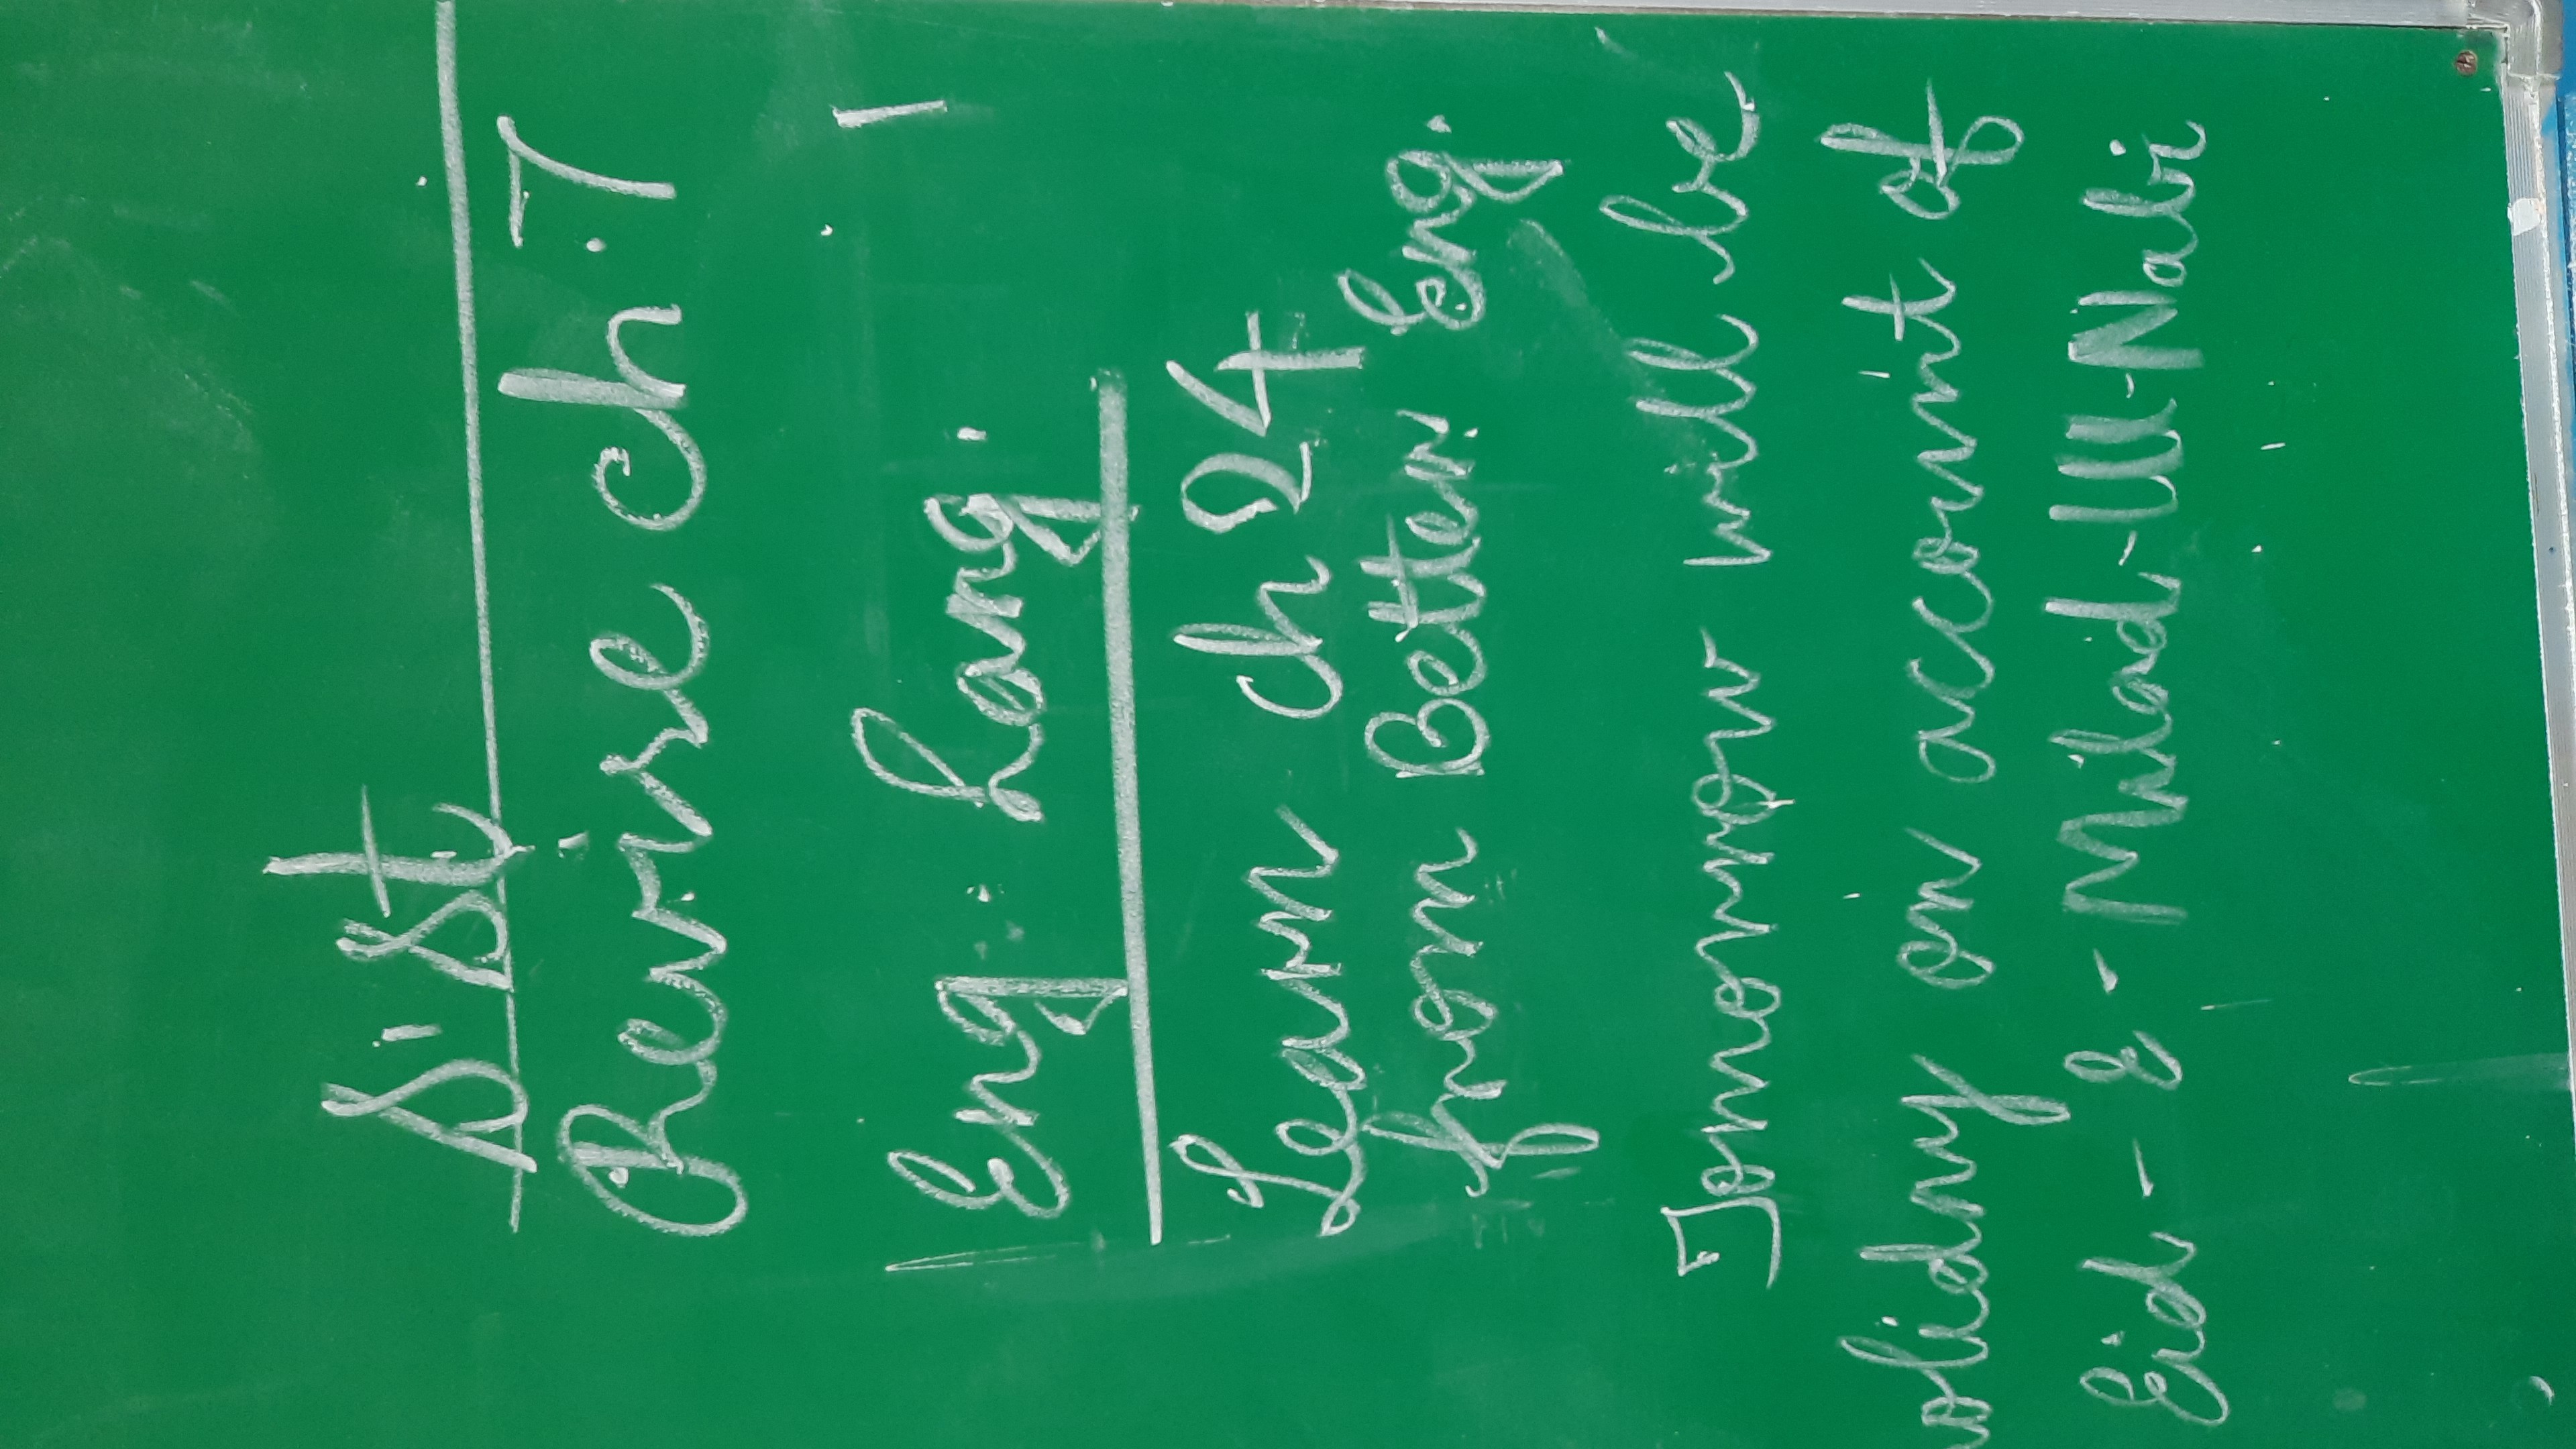 S'St
Revise ch.7
Eng. Lang.
Learn ch 24
from Better Eng.
Tomorrow will be
oliday on account of
Eid-e-Milad-Ul-Nabi